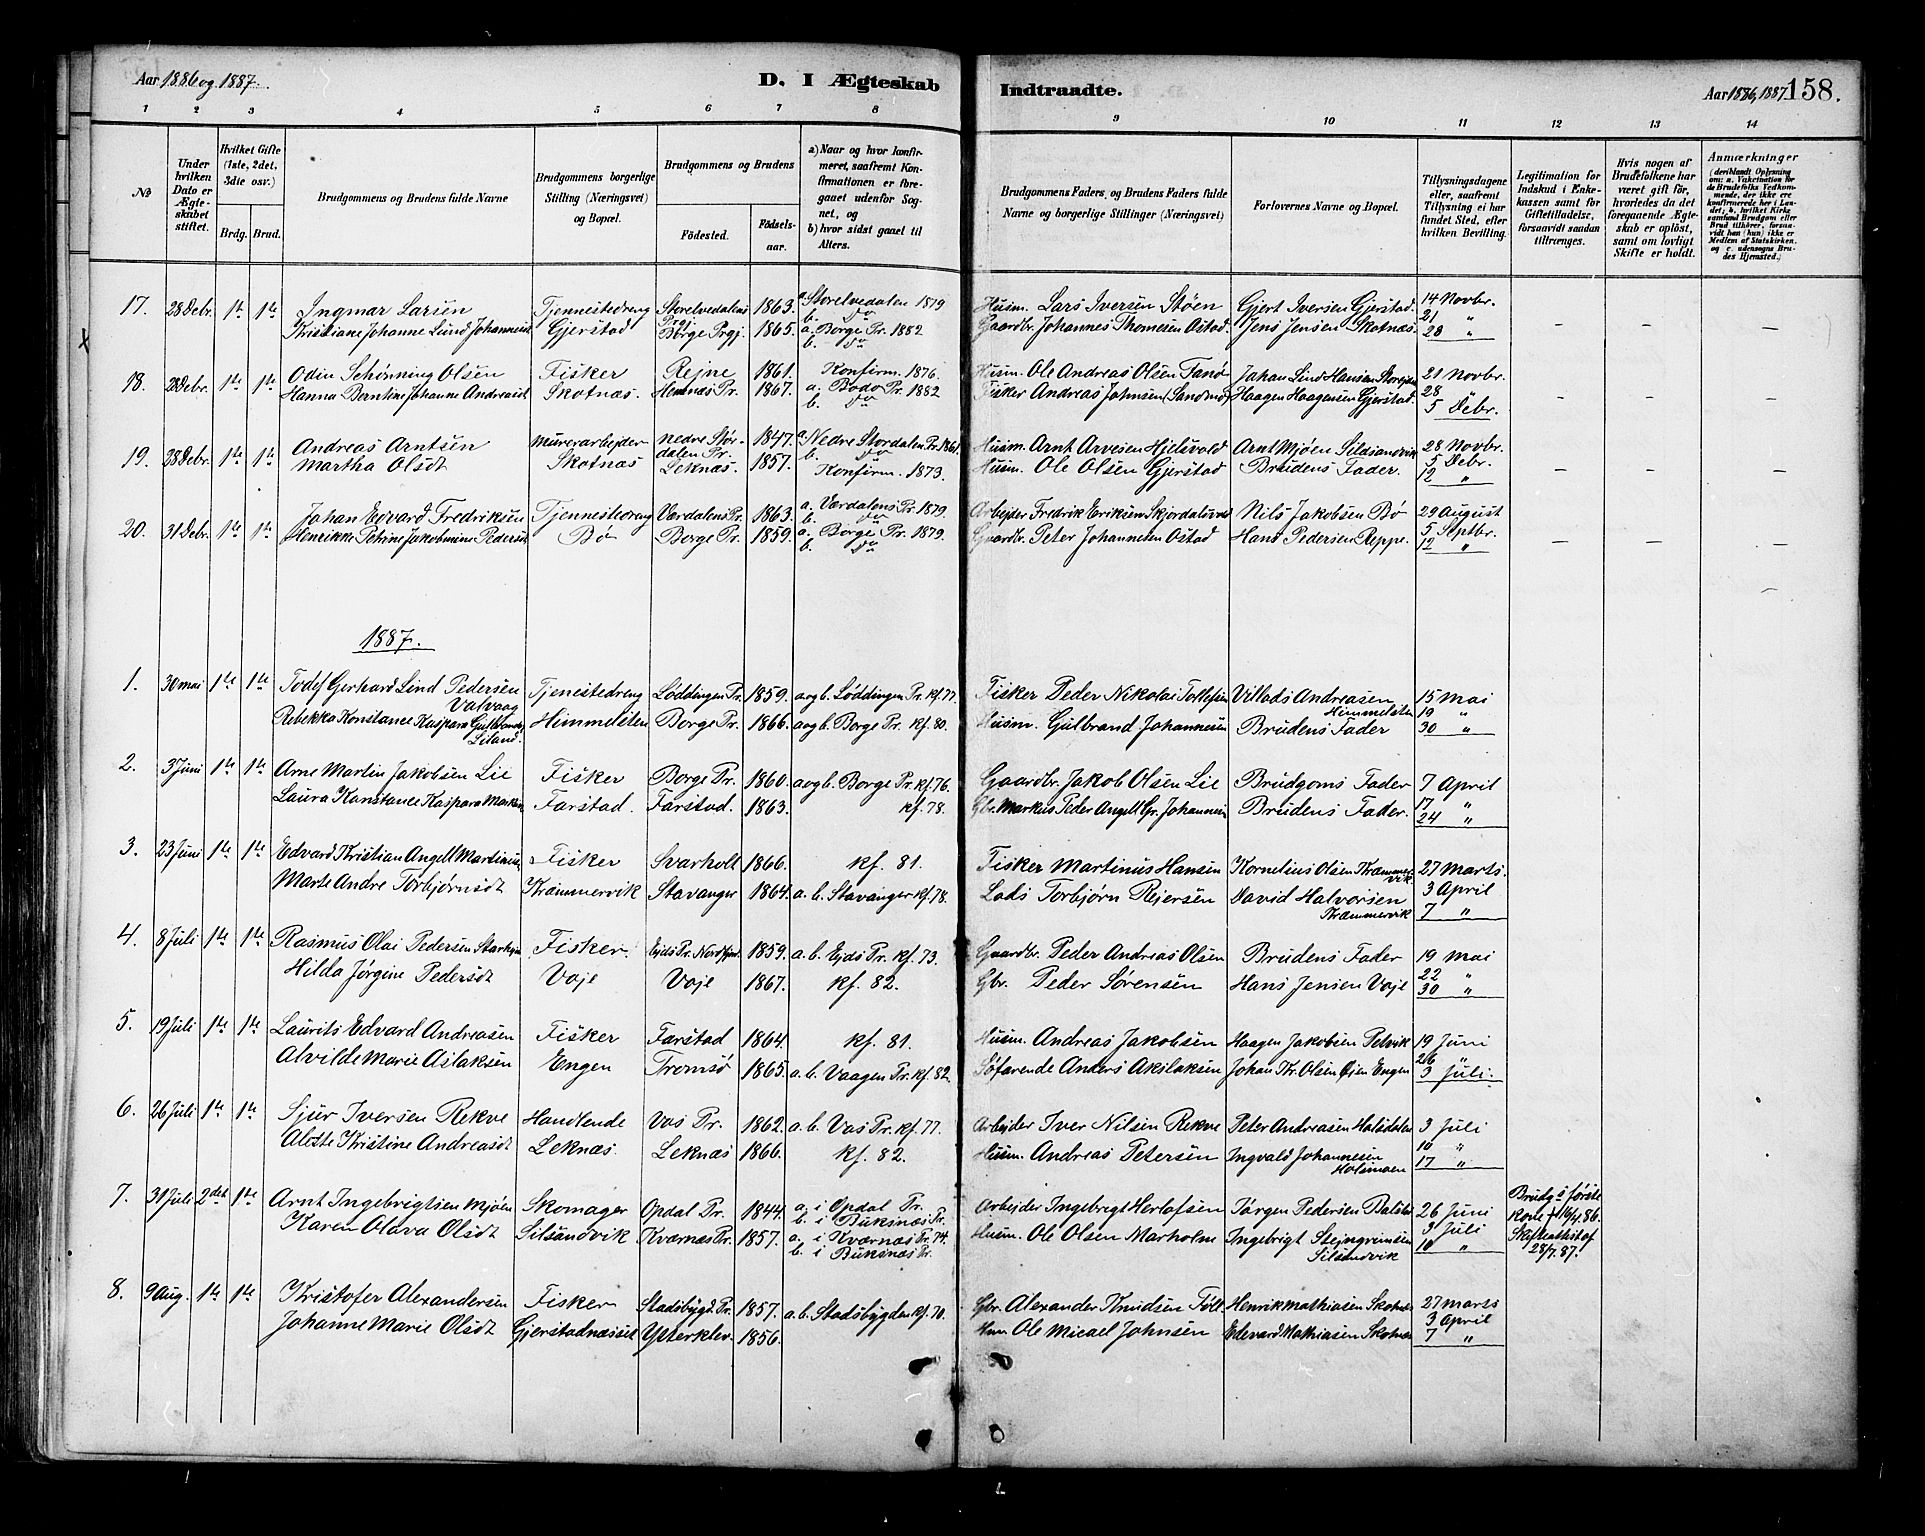 Aar 1886 og 1887.
D. I Ægteskab
Indtraadte.
Aar 1886, 1887 158.
1 2 3 4 5 6 7 8 9 10 11 12 13 14
No
Under hvilken Dato er Ægteskabet stiftet.
Hvilket Gifte (1ste, 2det, 3die osv.)
Brdg. Brud.
Brudgommens og Brudens fulde Navne
Brudgommens borgerlige Stilling (Næringsvei) og Bopæl.
Brudgommens og Brudens
Fødested. Fødselsaar.
a) Naar og hvor konfirmeret, saafremt Konfirmationen er foregaaet udenfor Sognet, og
b) hvor sidst gaaet til Alters.
Brudgommens Faders, og Brudens Faders fulde Navne og borgerlige Stillinger (Næringsvei)
Forlovernes Navne og Bopæl.
Tillysningsdagene eller, saafremt Tillysning ei har fundet Sted, efter hvilken Bevilling.
Legitimation for Indskud i Enkekassen samt for Giftetilladelse, forsaavidt saadan tiltrænges.
Hvis nogen af Brudefolkene har været gift før, hvorledes da det foregaaende Ægteskab er opløst, samt om lovligt Skifte er holdt.
Anmærkninger (deriblandt Oplysning om: a. Vakcination for de Brudefolks Vedkommende, der ikke ere konfirmerede her i Landet; b. hvilken Kirkesamfund Brudgom eller Brud tilhører, forsaavidt han (hun) ikke er Medlem af Statskirken. og c. udensogns Brudes Hjemsted.)
17. 28 Debr. 1te 1te Ingmar Larsen Tjennestedreng Storelvedalens Prgj. 1863. a. Storelvedalen 1879 b. do Husm. Lars Iversen Støen Gjert Iversen Gjerstad. 14 Novbr.
Kristiane Johanne Lund Johannesd. Gjerstad Borge Prgj. 1865. a. Borge Pr. 1882 b. do Gaardbr. Johannes Thomesen Ostad. Jens Jensen Skotnæs. 21 " 28 " – – –
18. 28 Debr. 1te 1te Odin Schønning Olsen Fisker Rejne 1861. Konfirm. 1876. Husm. Ole Andreas Olsen Tand Johan Lind Hansen 21 Novbr.
Hanna Berntine Johanne Andreasd. Skotnæs. Hemnæs Pr. 1867. a. Bodø Pr. 1882 b. do Fisker Andreas Johnsen (Sandmo) Haagen Haagensen Gjerstad. 28 5 Debr. – – –
19. 28 Debr. 1te 1te Andreas Arntsen Murerarbejder Nedre Størdalen Pr. 1847. a. Nedre Stordalen Pr. 1861. b. do Husm. Arnt Arvesen Hjelsvold Arnt Mjøen Silsandvik 28 Novbr.
Martha Olsdt Skotnæs Leknæs. 1857. Konfirm. 1873. Husm. Ole Olsen Gjerstad Brudens Fader. 5 Debr. 12 " – – –
20. 31 Debr. 1te 1te Johan Edvard Fredriksen Tjennestedreng Værdalens Pr. 1863. a. Værdalens Pr. 1879. b. do Arbejder Fredrik Eriksen Nils Jakobsen Bø 29 August
Henrikke Petrine Jakobmine Pedersd. Bø Borge Pr. 1859. a. Borge Pr. 1879. b. do Gaardbr. Peter Johannesen Ostad Hans Pedersen Reppe. 5 Septbr. 12 " – – –
1887.
1. 30 Mai 1te 1te Todef Gerhard Lind Pedersen Valvaag Tjenestedreng Løddingen Pr. 1859. a og b. Løddingen Pr. kf. 77. Fisker Peder Nikolai Tollefsen Villads Andreasen Himmelsten 15 Mai
Rebekka Konstance Kaspara Gulbrandsd. Liland. Himmelsten Borge Pr. 1866. a og b. Borge Pr. kf. 80. Husm. Gulbrand Johannesen Brudens Fader 19 " 30 "
2. 3 Juni 1te 1te Arne Martin Jakobsen Lie Fisker Borge Pr. 1860. a og b. Borge Pr. kf. 76. Gaardbr. Jakob Olsen Lie Brudgoms Fader 7 April
Laura Konstance Kaspara Markusd. Farstad. Farstad. 1863. kf. 78. Gbr. Markus Peder Angell Gr. Johannesen Brudens Fader. 17 " 24 "
3. 23 Juni 1te 1te Edvard Kristian Angell Martinus. Fisker Svarholt 1866. kf. 81. Fisker Martinus Hansen Kornelius Olsen Kræmmervik 27 Marts.
Marte Andre Torbjørnsdt Kræmmervik Stavanger 1864. a. b. Stavanger kf. 78. Lods Torbjørn Rejersen David Halvorsen Kræmmervik 3 April 7 "
4. 8 Juli 1te 1te Rasmus Olai Pedersen Fisker. Ejds Pr. Nordfjord 1859. a. b. Ejds Pr. kf. 73. Gaardbr. Peder Andreas Olsen Brudens Fader 19 Mai
Hilda Jørgine Pedersdt Voje Voje 1867. kf. 82. Gbr. Peder Sørensen Hans Jensen Voje 22 30 "
5. 19 Juli 1te 1te Laurits Edvard Andreasen Fisker Farstad 1864. kf. 81. Husm. Andreas Jakobsen Haagen Jakobsen Petvik 19 Juni
Alvilde Marie Aslaksen Engen Tromsø 1865. a. b. Vaagen Pr. kf. 82. Søfarende Anders Akslaksen Johan Kr. Olsen Øien Engen 26 " 3 Juli.
6. 26 Juli 1te 1te Sjur Iversen Rekve Handlende Vos Pr. 1862. a. b. Vos Pr. kf. 77. Arbejder Iver Nilsen Rekve Peter Andreasen Halsdalen 3 Juli
Alette Kristine Andreasdt Leknæs. Leknæs 1866. kf. 82. Husm. Andreas Petersen Ingvald Johannesen Holsmoen 10 " 17 "
7. 31 Juli 2det 1te Arnt Ingebrigtsen Mjøen Skomager Opdal Pr. 1844. a. i Opdal Pr. b. i Buksnæs Pr. Arbejder Ingebrigt Herlofsen Jørgen Pedersen 26 Juni Brudg's første Kone † 16/4 86. Skifteattest af 28/7 87.
Karen Olava Olsdt Silsandvik Kværnæs Pr. 1857. a. i Kværnæs Pr. 74. b. i Buksnæs Pr. Husm. Ole Olsen Marholm Ingebrigt Stejngrimsen Silsandvik 3 Juli 10 "
8. 9 Aug. 1te 1te Kristofer Alexandersen Fisker Stadsbygd. Pr. 1857. a. b. Stadsbygden kf. 70. Gbr. Alexander Knudsen Henrik Mathiasen Skotnæs 27 Marts
Johanne Marie Olsdt Gjerstadnæsset Ysterklev. 1856. Hm Ole Micael Johnsen Edevard Mathiasen Skotnæs 3 April 7 "